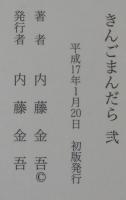 きんごまんだら 弐
平成17年1月20日 初版発行
著者 内藤金吾©
発行者 内藤金吾